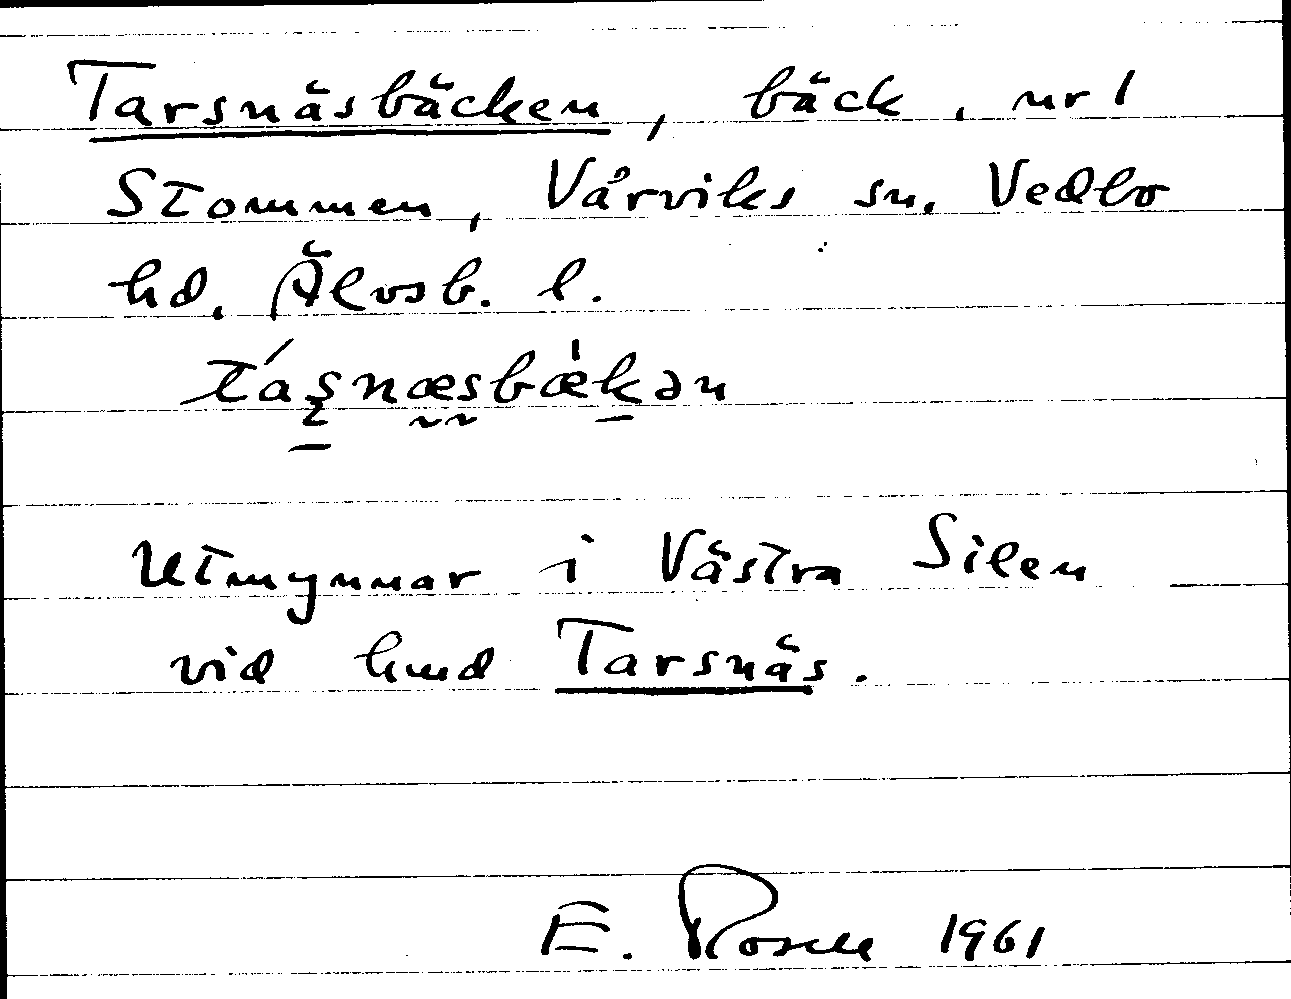 Tarsnäsbäcken, bäck, nr 1
Stommen, Vårviks sn. Vedbo
hd. Älvsb. l.
táʂnæsbæ̀kən
Utmynnar i Västra Silen
vid hmd Tarsnäs.
E. Rosell 1961